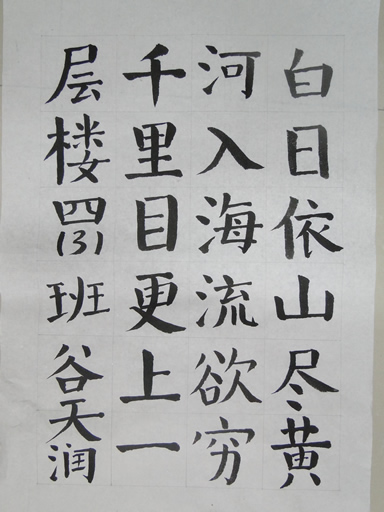 白日依山尽黄
河入海流欲穷
千里目更上一
层楼四(3)班谷天润